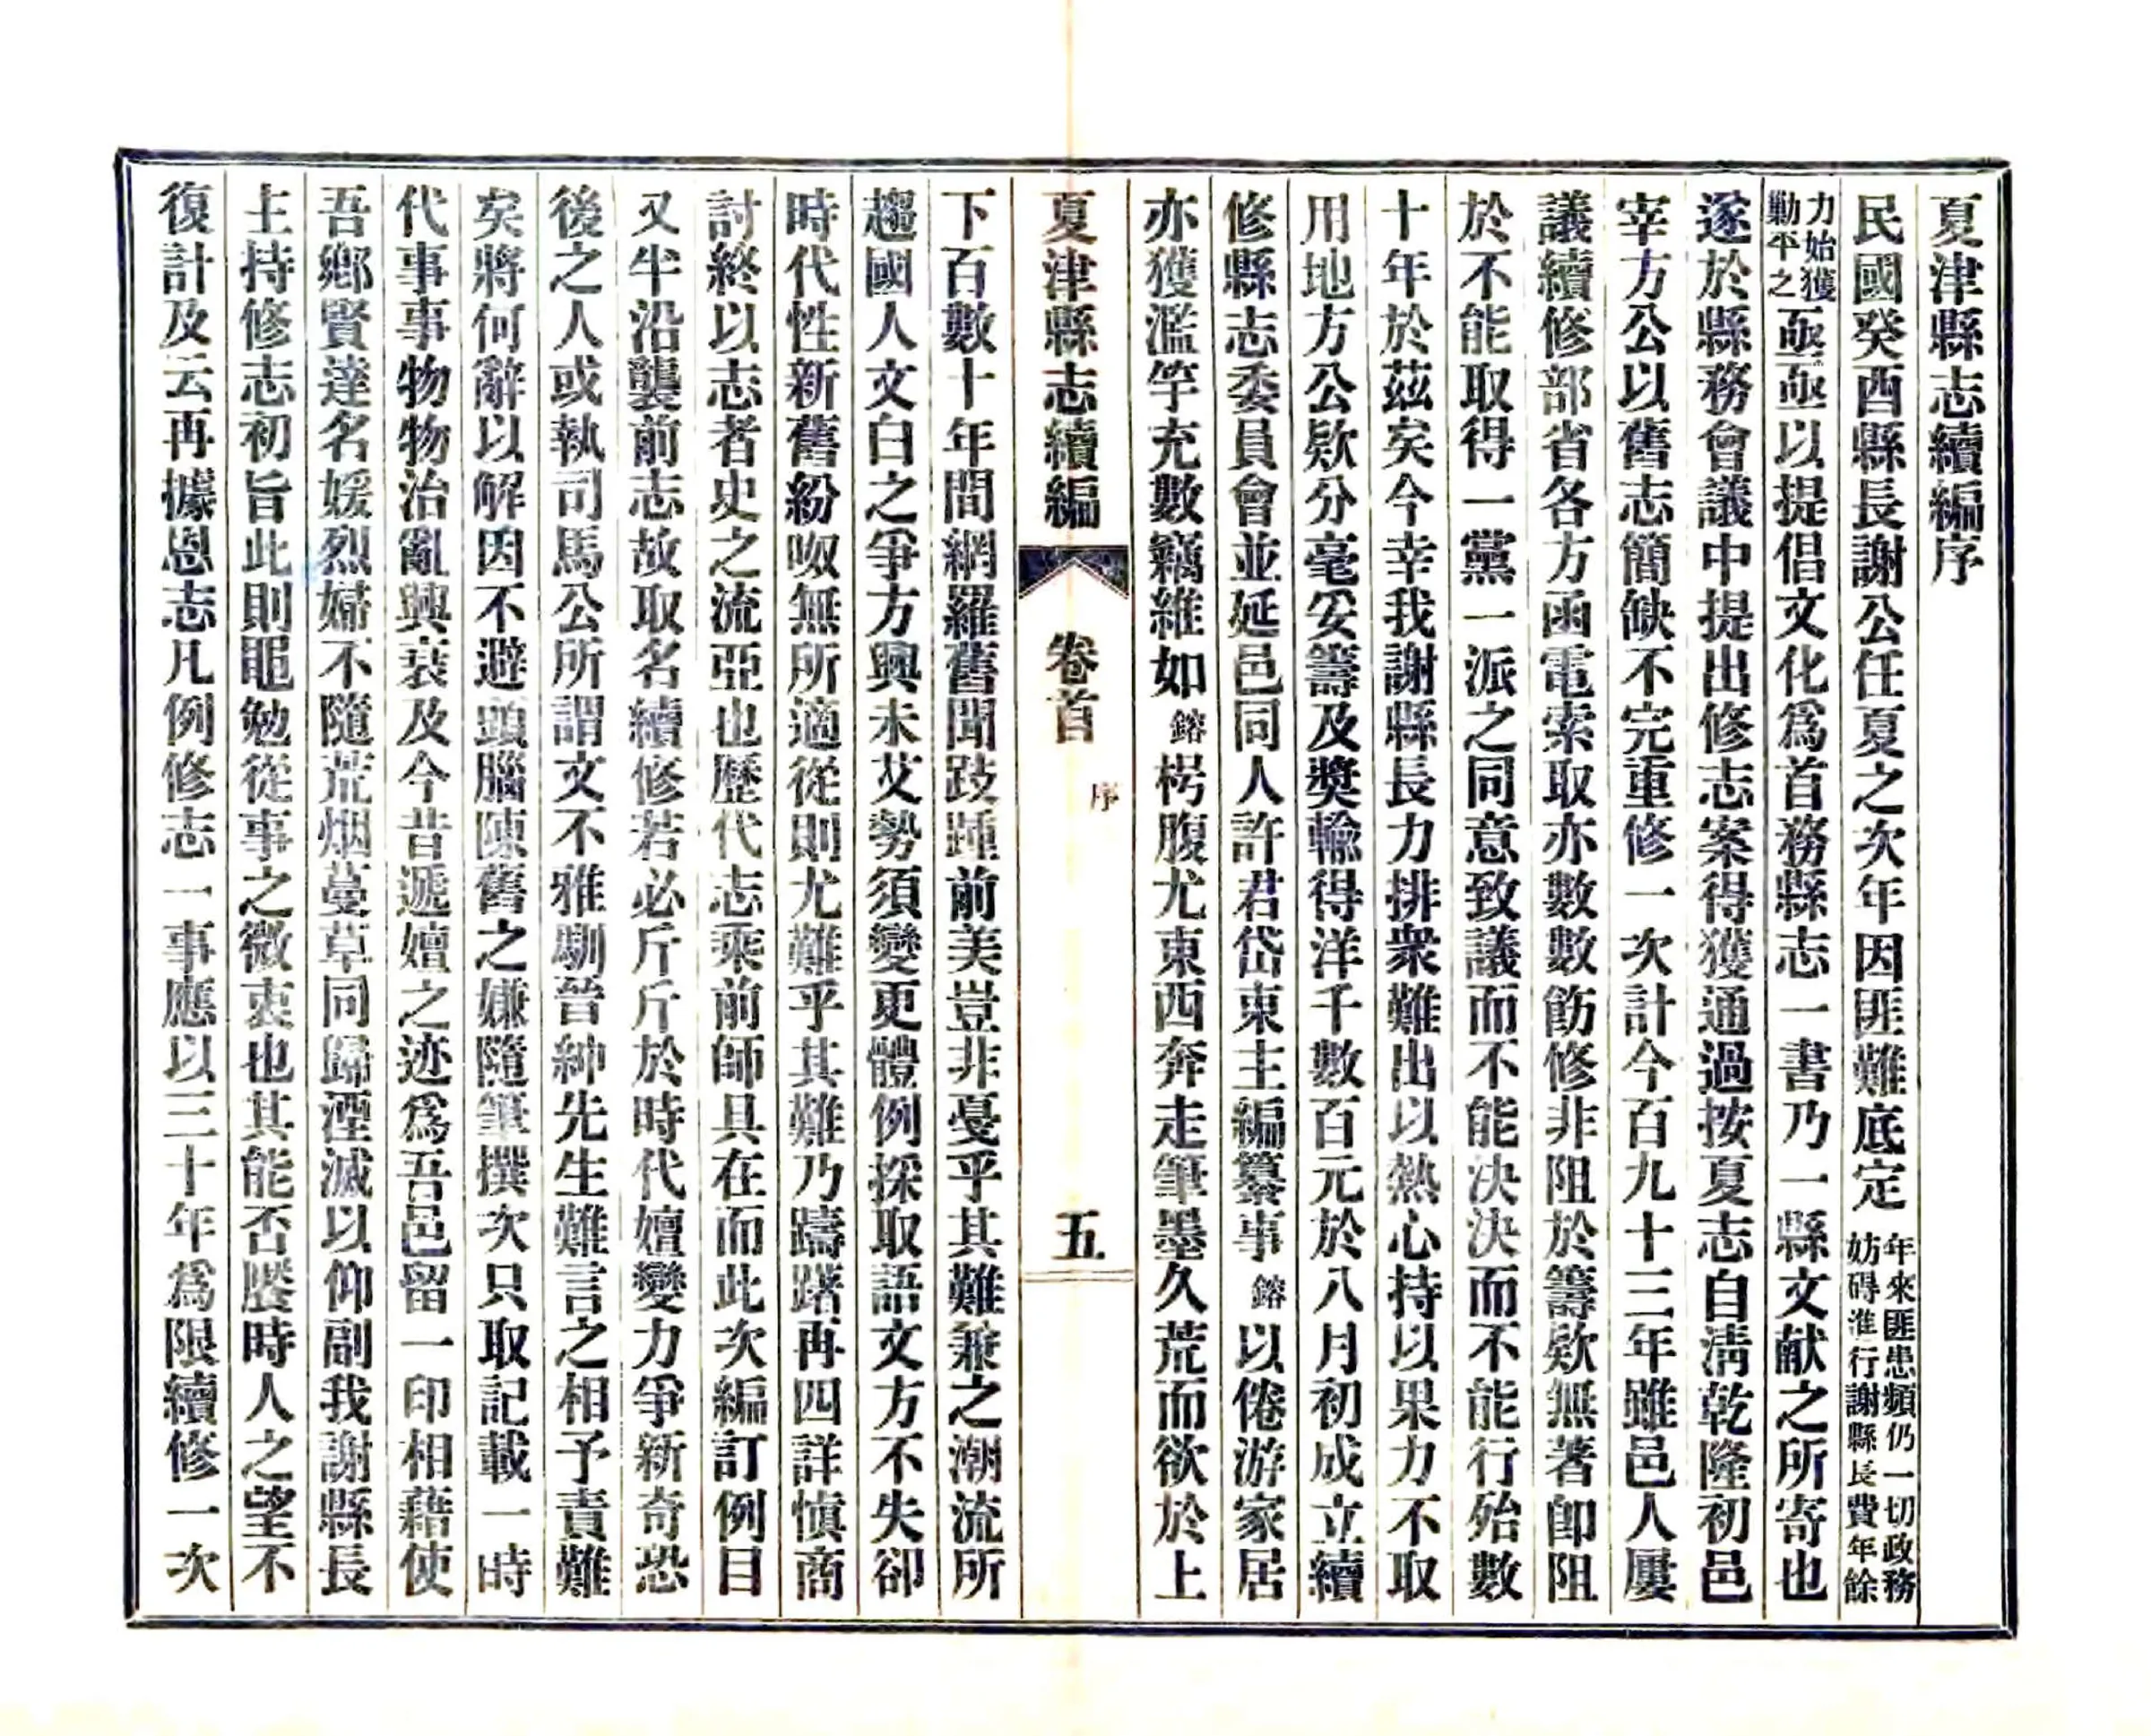 夏津縣志續編序
民國癸酉縣長謝公任夏之次年因匪難底定年來匪患頻仍一切政務妨碍進行謝縣長費年餘
力始獲勦平之亟亟以提倡文化爲首務縣志一書乃一縣文献之所寄也
遂於縣務會議中提出修志案得獲通過按夏志自淸乾隆初邑
宰方公以舊志簡缺不完重修一次計今百九十三年雖邑人屢
議續修部省各方函電索取亦數數飭修非阻於籌欵無著卽阻
於不能取得一黨一派之同意致議而不能決決而不能行殆數
十年於茲矣今幸我謝縣長力排衆難出以熱心持以果力不取
用地方公欵分毫妥籌及獎輸得洋千數百元於八月初成立續
修縣志委員會並延邑同人許君岱東主編纂事鎔以倦游家居
亦獲濫竽充數竊維如鎔枵腹尤東西奔走筆墨久荒而欲於上
夏津縣志續編 卷首 序 五
下百數十年間網羅舊聞跂踵前美豈非戞乎其難兼之潮流所
趨國人文白之爭方興未艾勢須變更體例採取語文方不失卻
時代性新舊紛呶無所適從則尤難乎其難乃躊躇再四詳愼商
討終以志者史之流亞也歷代志乘前師具在而此次編訂例目
又半沿襲前志故取名續修若必斤斤於時代嬗變力爭新奇恐
後之人或執司馬公所謂文不雅馴晉紳先生難言之相予責難
矣將何辭以解因不避頭腦陳舊之嫌隨筆撰次只取記載一時
代事事物物治亂興衰及今昔遞嬗之迹爲吾邑留一印相藉使
吾鄉賢達名媛烈婦不隨荒烟蔓草同歸湮滅以仰副我謝縣長
主持修志初旨此則黽勉從事之微衷也其能否饜時人之望不
復計及云再據恩志凡例修志一事應以三十年爲限續修一次